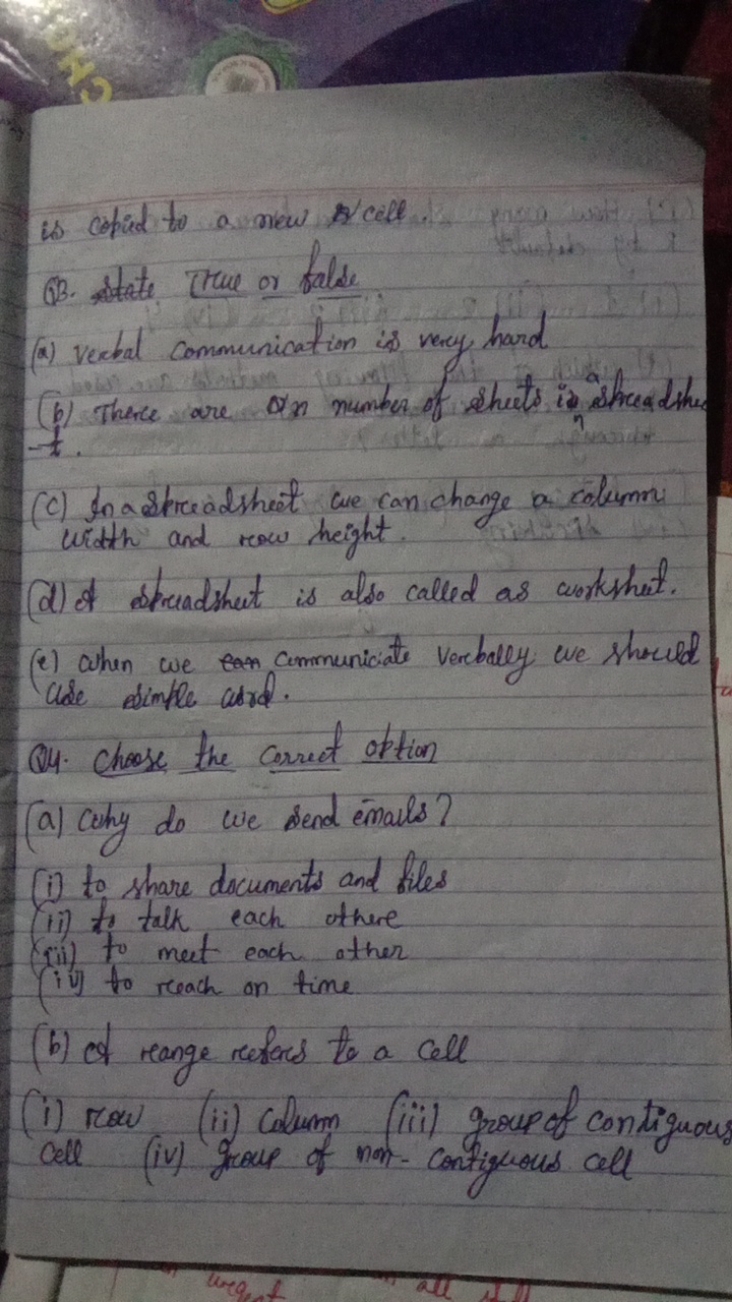 is copied to a new cell.
Q3. State True or false
(a) verbal communication is very hard
(b) There are n number of sheets in a spreadshee
-t.
(c) In a spreadsheet we can change a column
width and row height.
(d) A spreadsheet is also called as worksheet.
(e) when we can Communiciate verbally we should
use simple word.
Q4. Choose the Correct option
(a) Why do we send emails?
(i) to share documents and files
(ii) to talk each othere
(iii) to meet each other
(iv) to reach on time
(b) A range refers to a cell
(i) row (ii) Column (iii) group of contiguous
cell (iv) group of non-contiguous cell
urgent
all